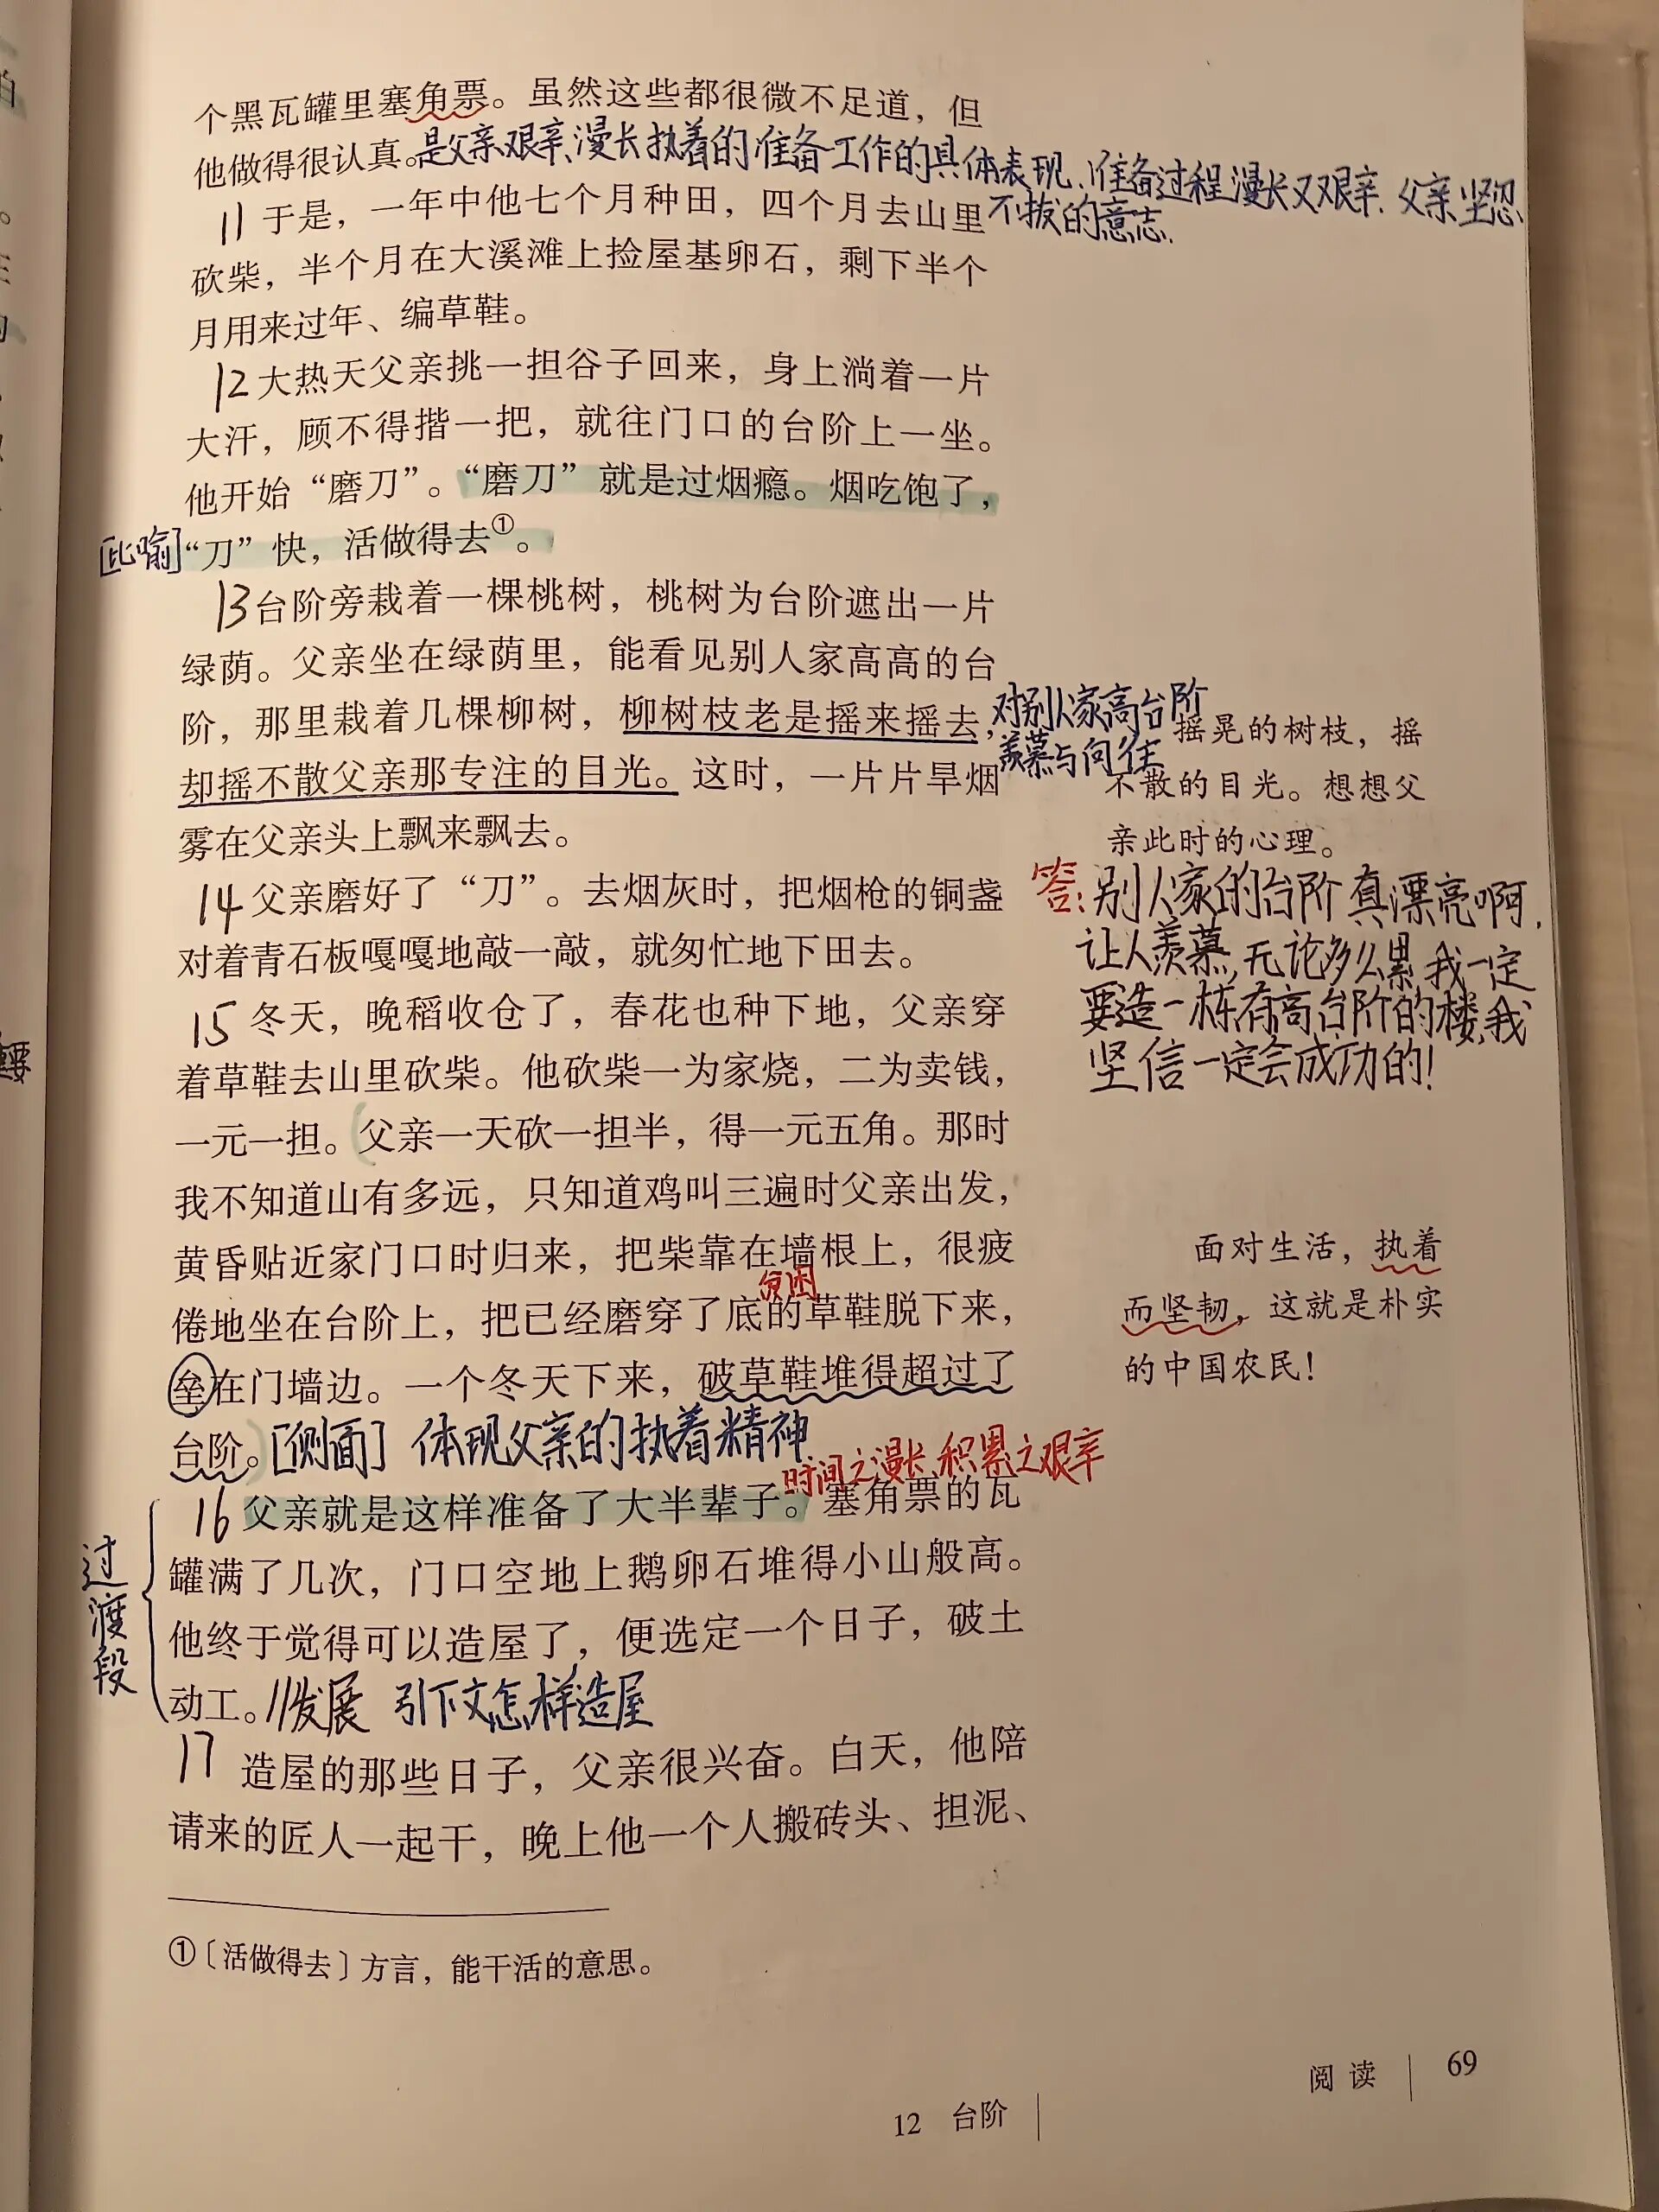 个黑瓦罐里塞角票。虽然这些都很微不足道，但
他做得很认真。是父亲艰辛、漫长执着的准备工作的具体表现、准备过程漫长又艰辛、父亲坚忍
不拔的意志.
11 于是，一年中他七个月种田，四个月去山里
砍柴，半个月在大溪滩上捡屋基卵石，剩下半个
月用来过年、编草鞋。
12 大热天父亲挑一担谷子回来，身上淌着一片
大汗，顾不得揩一把，就往门口的台阶上一坐。
他开始“磨刀”。“磨刀”就是过烟瘾。烟吃饱了，
[比喻] “刀”快，活做得去①。
13 台阶旁栽着一棵桃树，桃树为台阶遮出一片
绿荫。父亲坐在绿荫里，能看见别人家高高的台
阶，那里栽着几棵柳树，柳树枝老是摇来摇去，
却摇不散父亲那专注的目光。这时，一片片旱烟
雾在父亲头上飘来飘去。
对别人家高台阶
羡慕与向往
摇晃的树枝，摇
不散的目光。想想父
亲此时的心理。
答：别人家的台阶真漂亮啊，
让人羡慕，无论多么累，我一定
要造一栋有高台阶的楼，我
坚信一定会成功的！
14 父亲磨好了“刀”。去烟灰时，把烟枪的铜盏
对着青石板嘎嘎地敲一敲，就匆忙地下田去。
15 冬天，晚稻收仓了，春花也种下地，父亲穿
着草鞋去山里砍柴。他砍柴一为家烧，二为卖钱，
一元一担。(父亲一天砍一担半，得一元五角。那时
我不知道山有多远，只知道鸡叫三遍时父亲出发，
黄昏贴近家门口时归来，把柴靠在墙根上，很疲
贫困
倦地坐在台阶上，把已经磨穿了底的草鞋脱下来，
垒在门墙边。一个冬天下来，破草鞋堆得超过了
台阶。)[侧面] 体现父亲的执着精神
面对生活，执着
而坚韧，这就是朴实
的中国农民！
时间之漫长、积累之艰辛
16 父亲就是这样准备了大半辈子。塞角票的瓦
罐满了几次，门口空地上鹅卵石堆得小山般高。
他终于觉得可以造屋了，便选定一个日子，破土
动工。//发展 引下文怎样造屋
过渡段
17 造屋的那些日子，父亲很兴奋。白天，他陪
请来的匠人一起干，晚上他一个人搬砖头、担泥、
①〔活做得去〕方言，能干活的意思。
阅读 | 69
12 台阶 |